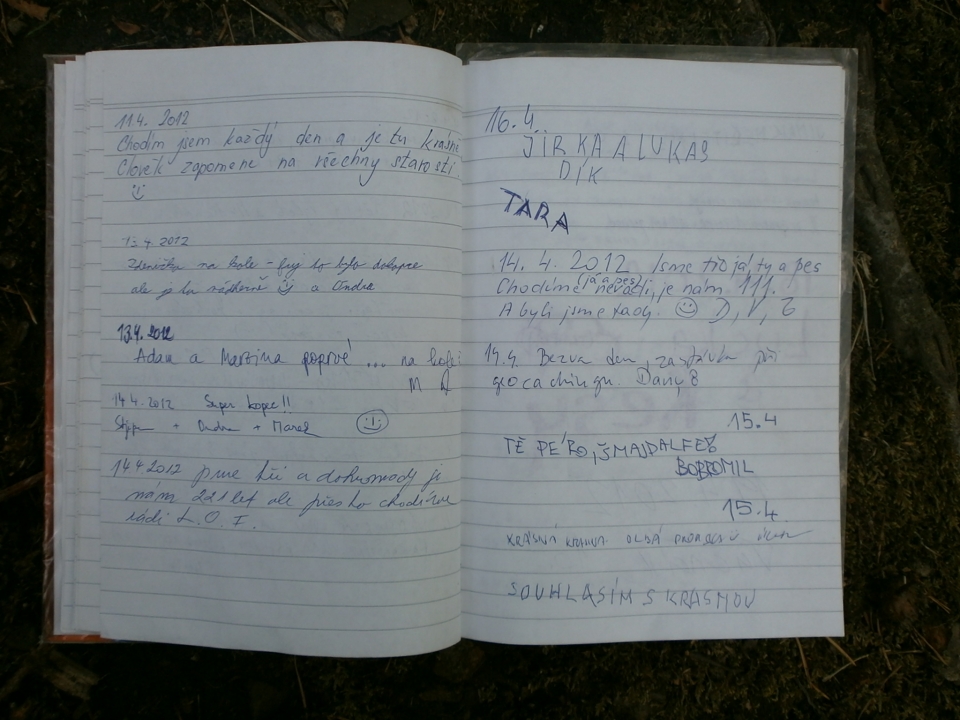 11.4. 2012
Chodím jsem každý den a je tu krásně
Člověk zapomene na všechny starosti.
13.4.2012
na kole - fuj to bylo
ale je tu nádherně a Ondra
13.4.2012
Adam a Martina poprvé ... na
M
14.4.2012 Super kopec!!
+ Ondra + Marek
14.4 2012 jsme tři a dohromady je
nám 221 let ale přesto chodíme
rádi L. O. I.
16.4.
JIRKA A LUKAS
DÍK
TARA
14. 4. 2012 Jsme tři já, ty a pes
(já a pes)
Chodíme nevadí, je nám 111.
A byli jsme tady. D, V,
14.4. Bezva den, zastávka při
geocachingu. Dany8
15.4
TĚ PÉRO, ŠMAJDALFEB
BOBROMIL
15.4
KRÁSNÁ
SOUHLASÍM S KRASNOU